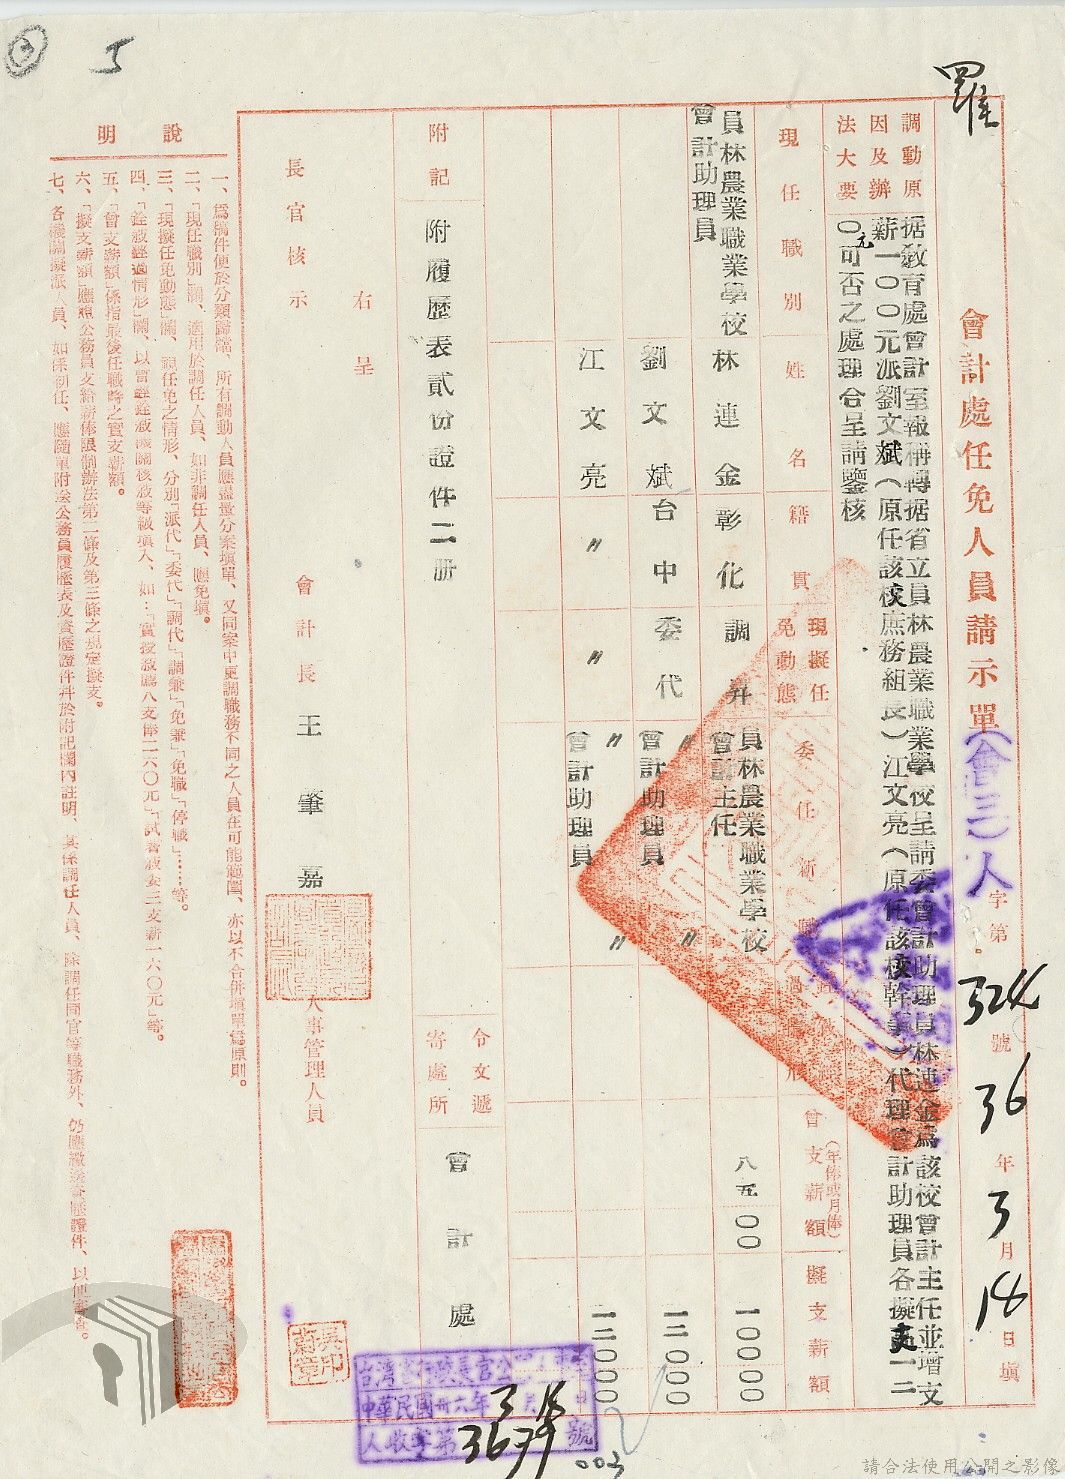 羅
5
會計處任免人員請示單(會三)人字第324號36年3月18日填
調動原因及辦法大要
据敎育處會計室報稱轉据省立員林農業職業學校呈請委會計助理員林連金爲該校會計主任並增支
薪一〇〇元派劉文斌(原任該校庶務組長)江文亮(原任該校幹事)代理會計助理員各擬支一二
〇元可否之處理合呈請鑒核
現任職別
姓名
籍貫
現擬任免動態
委任新職
曾支薪額
(年俸或月俸)
擬支薪額
員林農業職業學校
會計助理員
林連金
彰化
調昇
員林農業職業學校
會計主任
八五〇〇
一〇〇〇〇
劉文斌
台中
委代
〃 〃
會計助理員
一二〇〇〇
江文亮
〃
〃
〃 〃
會計助理員
一二〇〇〇
附記
附履歷表貳份證件二册
令文遞寄處所
會計處
右呈
長官核示
會計長王肇嘉
人事管理人員
說明
一、爲稿件便於分類歸檔、所有調動人員應盡量分案填單、又同案中更調職務不同之人員在可能範圍、亦以不合併填單爲原則。
二、「現任職別」欄、適用於調任人員、如非調任人員、應免填。
三、「現擬任免動態」欄、視任免之情形、分別「派代」「委代」「調代」「調兼」「免兼」「免職」「停職」……等。
四、「銓敍經過情形」欄、以曾經銓敍機關核敍等級填入、如:「實授敍薦八支俸二六〇元」「試署敍委二支薪一六〇元」等。
五、「曾支薪額」係指最後任職時之實支薪額。
六、「擬支薪額」應照公務員支給薪俸限制辦法第二條及第三條之規定擬支。
七、各機關擬派人員、如係初任、應隨單附送公務員履歷表及資歷證件并於附記欄內註明、其係調任人員、除調任同官等職務外、仍應繳送資歷證件、以便審查。
中華民國卅六年3月18日
人收字第3679號
003
請合法使用公開之影像